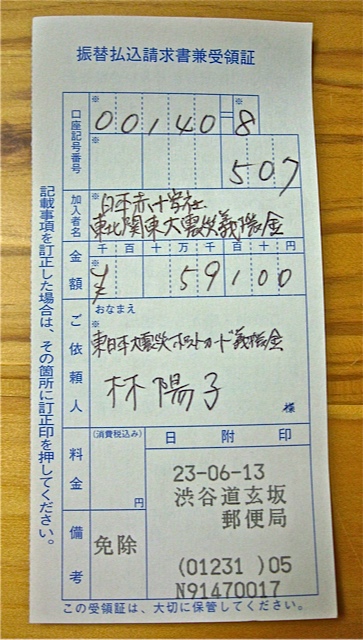 振替払込請求書兼受領証
口座記号番号
※ 00140 ※ 8
※ 507
加入者名
※ 日本赤十字社
東北関東大震災義援金
金額
千百十万千百十円
※ ¥ 59100
ご依頼人
おなまえ
東日本大震災ポストカード義援金
林陽子
様
料金
(消費税込み)
円
備考
免除
日附印
23-06-13
渋谷道玄坂
郵便局
(01231 )05
N91470017
記載事項を訂正した場合は、その箇所に訂正印を押してください。
この受領証は、大切に保管してください。